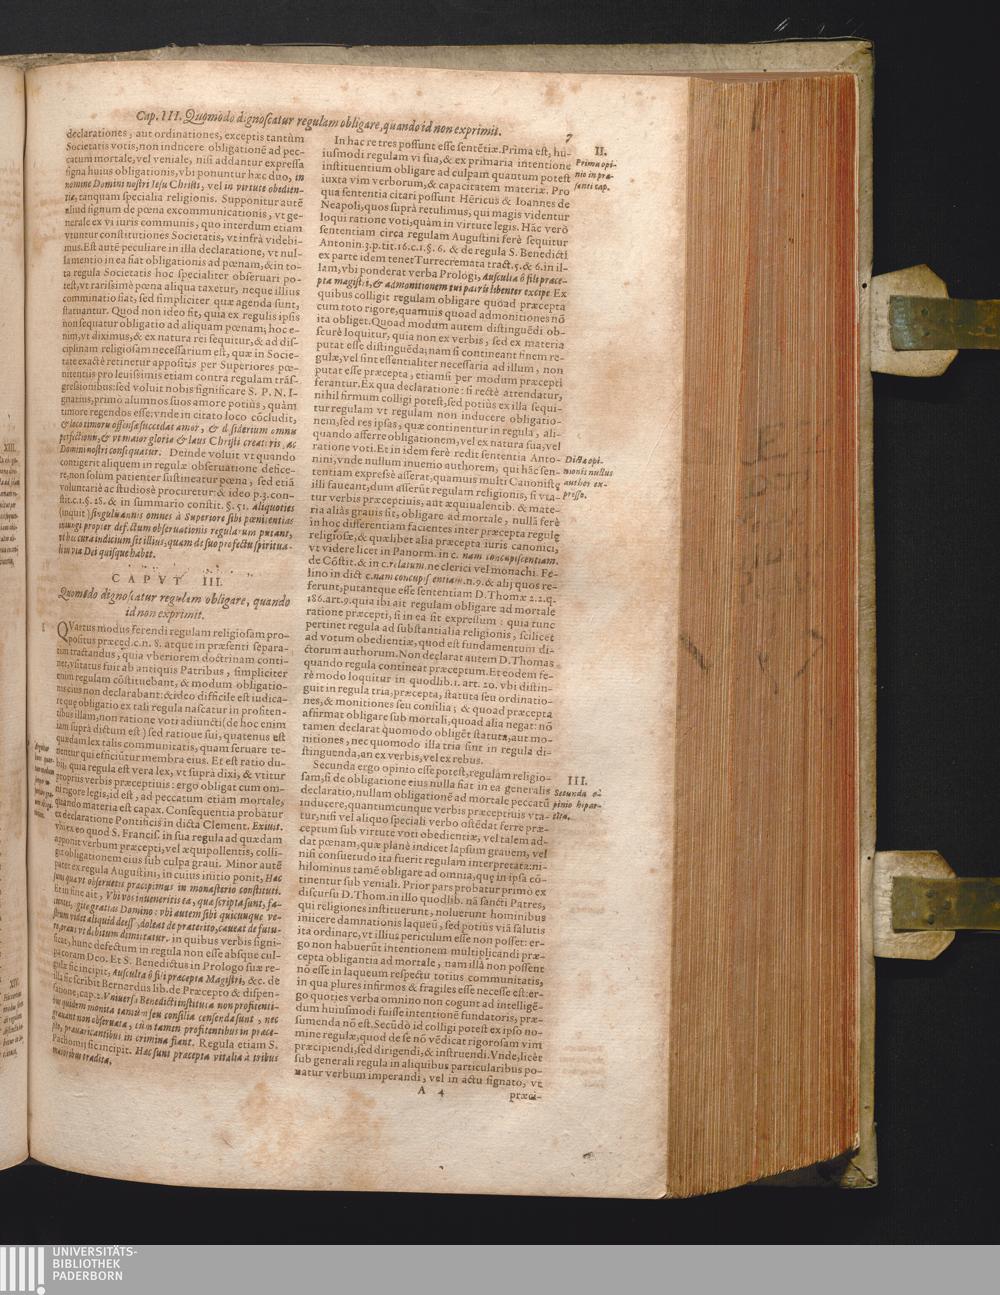 Cap. III. Quomodo dignoscatur regulam obligare, quando id non exprimit.
7
declarationes, aut ordinationes, exceptis tantùm
Societatis votis, non inducere obligationē ad pec-
catum mortale, vel veniale, nisi addantur expressa
signa huius obligationis, vbi ponuntur hæc duo, in
nomine Domini nostri Iesu Christi, vel in virtute obedien-
tiæ, tanquam specialia religionis. Supponitur autē
aliud signum de pœna excommunicationis, vt ge-
nerale ex vi iuris communis, quo interdum etiam
vtuntur constitutiones Societatis, vt infrà videbi-
mus. Est autē peculiare in illa declaratione, vt nul-
lamentio in ea fiat obligationis ad pœnam, & in to-
ta regula Societatis hoc specialiter obseruari po-
test, vt rarissimè pœna aliqua taxetur, neque illius
comminatio fiat, sed simpliciter quæ agenda sunt,
statuantur. Quod non ideo fit, quia ex regulis ipsis
non sequatur obligatio ad aliquam pœnam; hoc e-
nim, vt diximus, & ex natura rei sequitur, & ad dis-
ciplinam religiosam necessarium est, quæ in Socie-
tate exactè retinetur appositis per Superiores pœ-
nitentiis pro leuissimis etiam contra regulam trās-
gressionibus: sed voluit nobis significare S. P. N. I-
gnatius, primò alumnos suos amore potiùs, quàm
timore regendos esse; vnde in citato loco cōcludit,
& loco timoris offensæ succedat amor, & desiderium omnis
perfectionis, & vt maior gloria & laus Christi creatoris, ac
Domini nostri consequatur. Deinde voluit vt quando
contigerit aliquem in regulæ obseruatione defice-
re, non solùm patienter sustineatur pœna, sed etiā
voluntariè ac studiosè procuretur: & ideo p.3. con-
stit. c.1. §.28. & in summario constit. §. 51. aliquoties
(inquit) singulis annis omnes à Superiore sibi pœnitentias
iniungi propter defectum obseruationis regularum putant,
vt hæc cura indicium sit illius, quam de suo profectu spiritua-
li in via Dei quisque habet.
CAPVT III.
Quomodo dignoscatur regulam obligare, quando
id non exprimit.
I
QVartus modus ferendi regulam religiosam pro-
positus præced. c. n. 8. atque in præsenti separa-
tim tractandus, quia vberiorem doctrinam conti-
net, vsitatus fuit ab antiquis Patribus, simpliciter
enim regulam cōstituebant, & modum obligatio-
nis eius non declarabant: & ideo difficile est iudica-
re quæ obligatio ex tali regula nascatur in profiten-
tibus illam, non ratione voti adiuncti (de hoc enim
iam suprà dictum est) sed ratione sui, quatenus est
quædam lex talis communitatis, quam seruare te-
nentur qui efficiūtur membra eius. Et est ratio du-
bij, quia regula est vera lex, vt suprà dixi, & vtitur
propriis verbis præceptiuis: ergo obligat cum om-
ni rigore legis, id est, ad peccatum etiam mortale,
quando materia est capax. Consequentia probatur
ex declaratione Pontificis in dicta Clement. Exiuit.
vbi ex eo quod S. Francisc. in sua regula ad quædam
apponit verbum præcepti, vel æquipollentis, colli-
git obligationem eius sub culpa graui. Minor autē
patet ex regula Augustini, in cuius initio ponit, Hæc
sunt quæ vt obseruetis præcipimus in monasterio constituti.
Et in fine ait, Vbi vos inueneritis ea, quæ scripta sunt, fa-
cientes, agite gratias Domino: vbi autem sibi quicunque ve-
strum videt aliquid deesse, doleat de præterito, caueat de futu-
ro, orans vt debitum dimittatur. in quibus verbis signi-
ficat, hunc defectum in regula non esse absque cul-
pa coram Deo. Et S. Benedictus in Prologo suæ re-
gulæ sic incipit, Ausculta ô fili præcepta Magistri, &c. de
illa sic scribit Bernardus lib. de Præcepto & dispen-
satione, cap. 2. Vniuersa Benedicti instituta non profitenti-
bus quidem monita tantùm seu consilia censenda sunt, nec
grauant non obseruata, cùm tamen profitentibus in præce-
pta, præuaricantibus in crimina fiant. Regula etiam S.
Pachomij sic incipit. Hæc sunt præcepta vitalia à tribus
maioribus tradita.
In hac re tres possunt esse sentētiæ. Prima est, hu-
iusmodi regulam vi sua, & ex primaria intentione
instituentium obligare ad culpam quantum potest
iuxta vim verborum, & capacitatem materiæ. Pro
qua sententia citari possunt Hēricus & Ioannes de
Neapoli, quos suprà retulimus, qui magis videntur
loqui ratione voti, quàm in virtute legis. Hāc verò
sententiam circa regulam Augustini ferè sequitur
Antonin. 3. p. tit. 16. c. 1. §. 6. & de regula S. Benedicti
ex parte idem tenet Turrecremata tract. 5. & 6. in il-
lam, vbi ponderat verba Prologi, Ausculta ô fili præce-
pta magistri, & admonitionem tui patris libenter excipe. Ex
quibus colligit regulam obligare quoad præcepta
cum toto rigore, quamuis quoad admonitiones nō
ita obliget. Quoad modum autem distinguēdi ob-
scurè loquitur, quia non ex verbis, sed ex materia
putat esse distinguēda; nam si contineant finem re-
gulæ, vel sint essentialiter necessaria ad illum, non
putat esse præcepta, etiamsi per modum præcepti
ferantur. Ex qua declaratione: si rectè attendatur,
nihil firmum colligi potest, sed potiùs ex illa sequi-
tur regulam vt regulam non inducere obligatio-
nem, sed res ipsas, quæ continentur in regula, ali-
quando afferre obligationem, vel ex natura sua, vel
ratione voti. Et in idem ferè redit sententia Anto-
nini, vnde nullum inuenio authorem, qui hāc sen-
tentiam expressè asserat, quamuis multi Canonistę
illi faueant, dum asserūt regulam religionis, si vta-
tur verbis præceptiuis, aut æquiualentib. & mate-
ria aliàs grauis sit, obligare ad mortale, nullā ferè
in hoc differentiam facientes inter præcepta regulę
religiosæ, & quælibet alia præcepta iuris canonici,
vt videre licet in Panorm. in c. nam concupiscentiam.
de Cōstit. & in c. relatum. ne clerici vel monachi. Fe-
lino in dict. c. nam concupiscentiam. n. 9. & alij quos re-
ferunt, putantque esse sententiam D. Thomæ 2. 2. q.
186. art. 9. quia ibi ait regulam obligare ad mortale
ratione præcepti, si in ea sit expressum: quia tunc
pertinet regula ad substantialia religionis, scilicet
ad votum obedientiæ, quod est fundamentum di-
ctorum authorum. Non declarat autem D. Thomas
quando regula contineat præceptum. Et eodem fe-
rè modo loquitur in quodlib. 1. art. 20. vbi distin-
guit in regula tria, præcepta, statuta seu ordinatio-
nes, & monitiones seu consilia; & quoad præcepta
affirmat obligare sub mortali, quoad alia negat: nō
tamen declarat quomodo obligēt statuta, aut mo-
nitiones, nec quomodo illa tria sint in regula di-
stinguenda, an ex verbis, vel ex rebus.
Secunda ergo opinio esse potest, regulam religio-
sam, si de obligatione eius nulla fiat in ea generalis
declaratio, nullam obligationē ad mortale peccatū
inducere, quantumcunque verbis præceptiuis vta-
tur, nisi vel aliquo speciali verbo ostēdat ferre præ-
ceptum sub virtute voti obedientiæ, vel talem ad-
dat pœnam, quæ planè indicet lapsum grauem, vel
nisi consuetudo ita fuerit regulam interpretata: ni-
hilominus tamē obligare ad omnia, quę in ipsa cō-
tinentur sub veniali. Prior pars probatur primò ex
discursu D. Thom. in illo quodlib. nā sancti Patres,
qui religiones instituerunt, noluerunt hominibus
iniicere damnationis laqueū, sed potiùs viā salutis
ita ordinare, vt illius periculum esse non posset: er-
go non habuerūt intentionem multiplicandi præ-
cepta obligantia ad mortale, nam illā non possent
nō esse in laqueum respectu totius communitatis,
in qua plures infirmos & fragiles esse necesse est: er-
go quoties verba omnino non cogunt ad intelligē-
dum huiusmodi fuisse intentionē fundatoris, præ-
sumenda nō est. Secūdò id colligi potest ex ipso no-
mine regulæ, quod de se nō vēdicat rigorosam vim
præcipiendi, sed dirigendi, & instruendi. Vnde, licèt
sub generali regula in aliquibus particularibus po-
natur verbum imperandi, vel in actu signato, vt
A 4
præci-
II.
Prima opi-
nio in præ-
senti cap.
Dicta opi-
nionis nullus
author ex-
presse.
III.
Secunda o-
pinio bipar-
tita.
XIII.
XIV.
UNIVERSITÄTS-
BIBLIOTHEK
PADERBORN